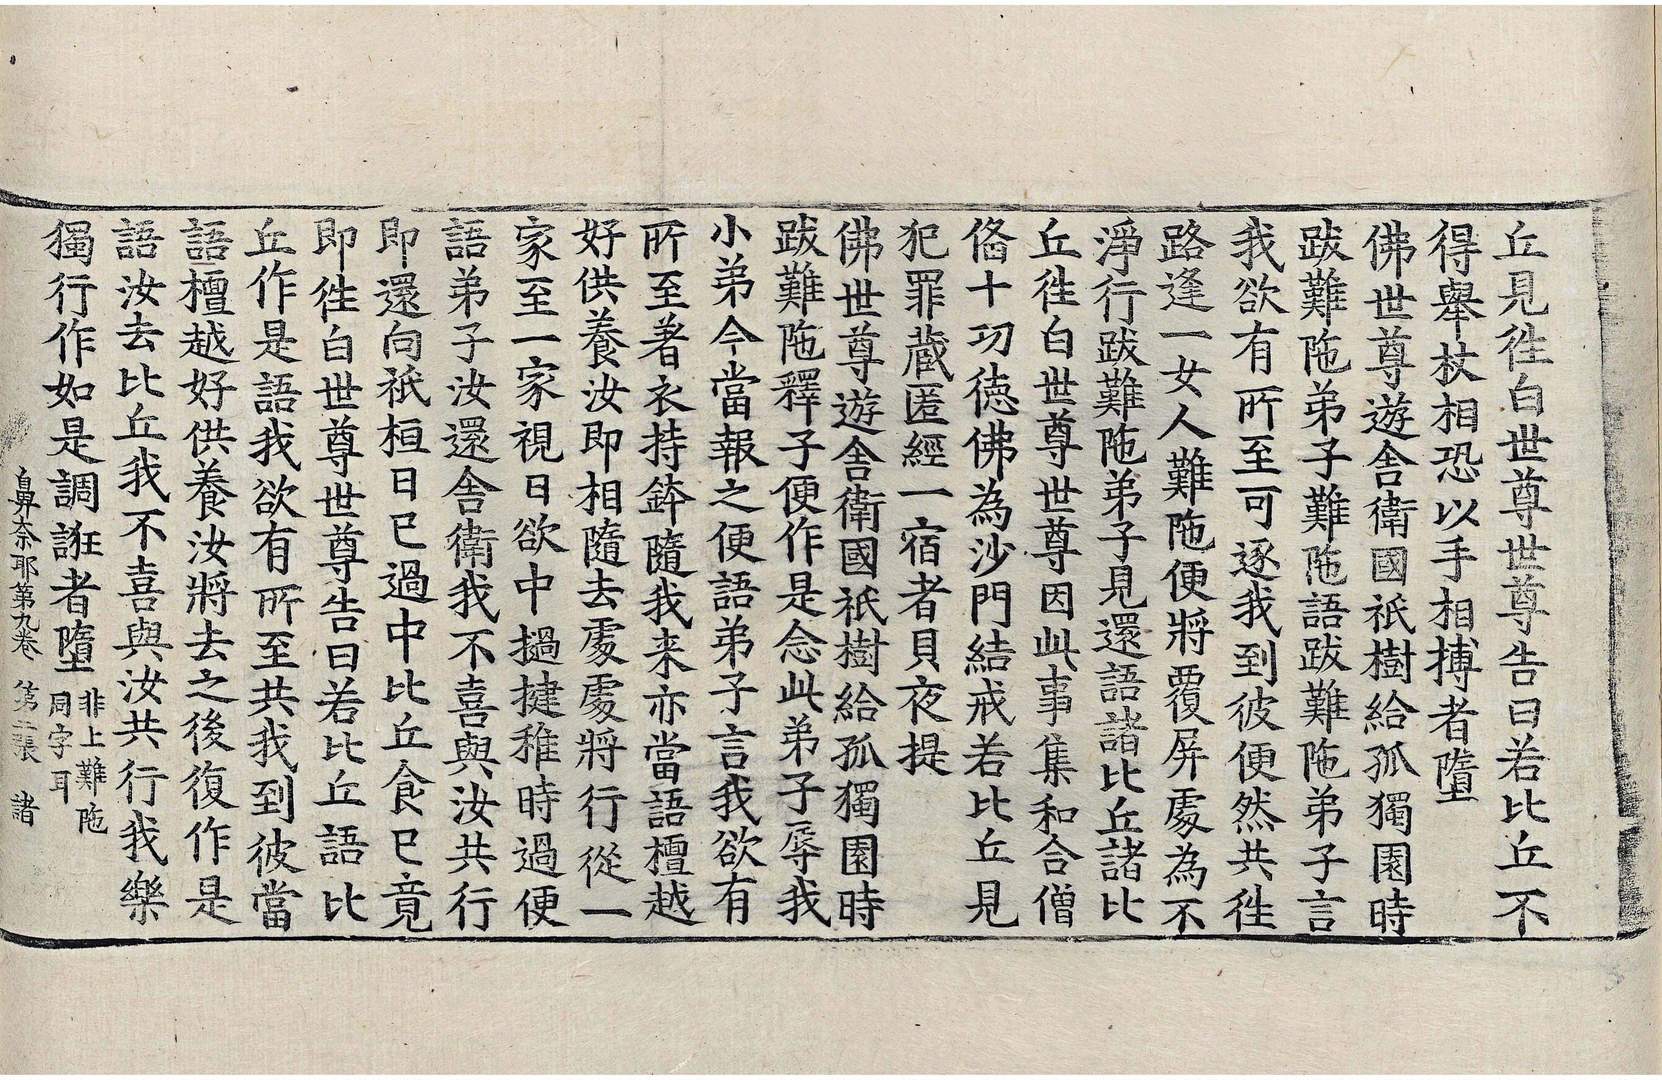 丘見徃白世尊世尊告曰若比丘不
得舉杖相恐以手相搏者墮
佛世尊遊舍衛國祇樹給孤獨園時
跋難陁弟子難陁語跋難陁弟子言
我欲有所至可逐我到彼便然共徃
路逢一女人難陁便將覆屏處為不
淨行跋難陁弟子見還語諸比丘諸比
丘徃白世尊世尊因此事集和合僧
俻十功德佛為沙門結戒若比丘見
犯罪蔵匿經一宿者貝夜提
佛世尊遊舍衛國祇樹給孤獨園時
跋難陁釋子便作是念此弟子辱我
小弟今當報之便語弟子言我欲有
所至著衣持鉢隨我来亦當語檀越
好供養汝即相隨去處處將行從一
家至一家視日欲中撾揵稚時過便
語弟子汝還舍衛我不喜與汝共行
即還向祇桓日已過中比丘食已竟
即徃白世尊世尊告曰若比丘語比
丘作是語我欲有所至共我到彼當
語檀越好供養汝將去之後復作是
語汝去比丘我不喜與汝共行我樂
獨行作如是調誑者墮非上難陁同字耳
鼻奈耶第九卷 第二張 諸